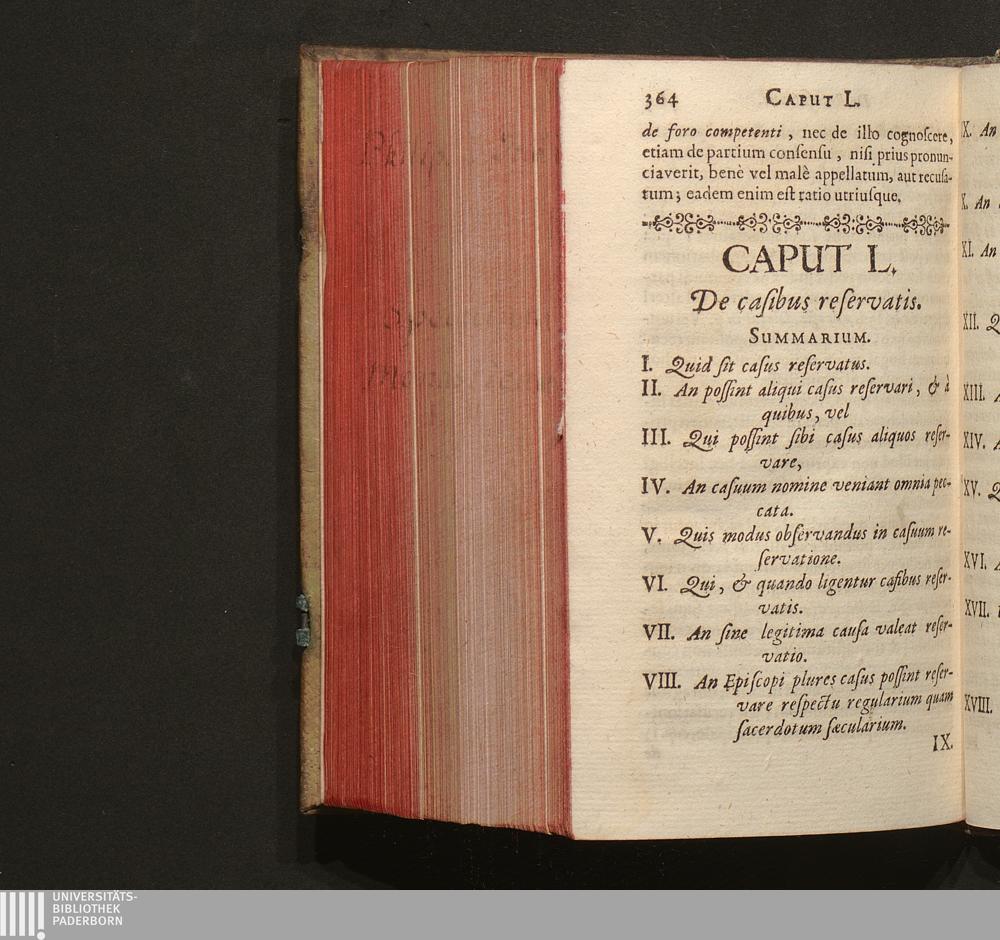 364 CAPUT L.
de foro competenti, nec de illo cognoſcere,
etiam de partium conſenſu, niſi prius pronun-
ciaverit, benè vel malè appellatum, aut recuſa-
tum; eadem enim eſt ratio utriuſque.
CAPUT L.
De caſibus reſervatis.
SUMMARIUM.
I. Quid ſit caſus reſervatus.
II. An poſſint aliqui caſus reſervari, & à
quibus, vel
III. Qui poſſint ſibi caſus aliquos reſer-
vare,
IV. An caſuum nomine veniant omnia pec-
cata.
V. Quis modus obſervandus in caſuum re-
ſervatione.
VI. Qui, & quando ligentur caſibus reſer-
vatis.
VII. An ſine legitima cauſa valeat reſer-
vatio.
VIII. An Epiſcopi plures caſus poſſint reſer-
vare reſpectu regularium quam
ſacerdotum ſæcularium.
IX.
X. An
X. An
XI. An
XII.
XIII.
XIV.
XV.
XVI.
XVII.
XVIII.
UNIVERSITÄTS-
BIBLIOTHEK
PADERBORN